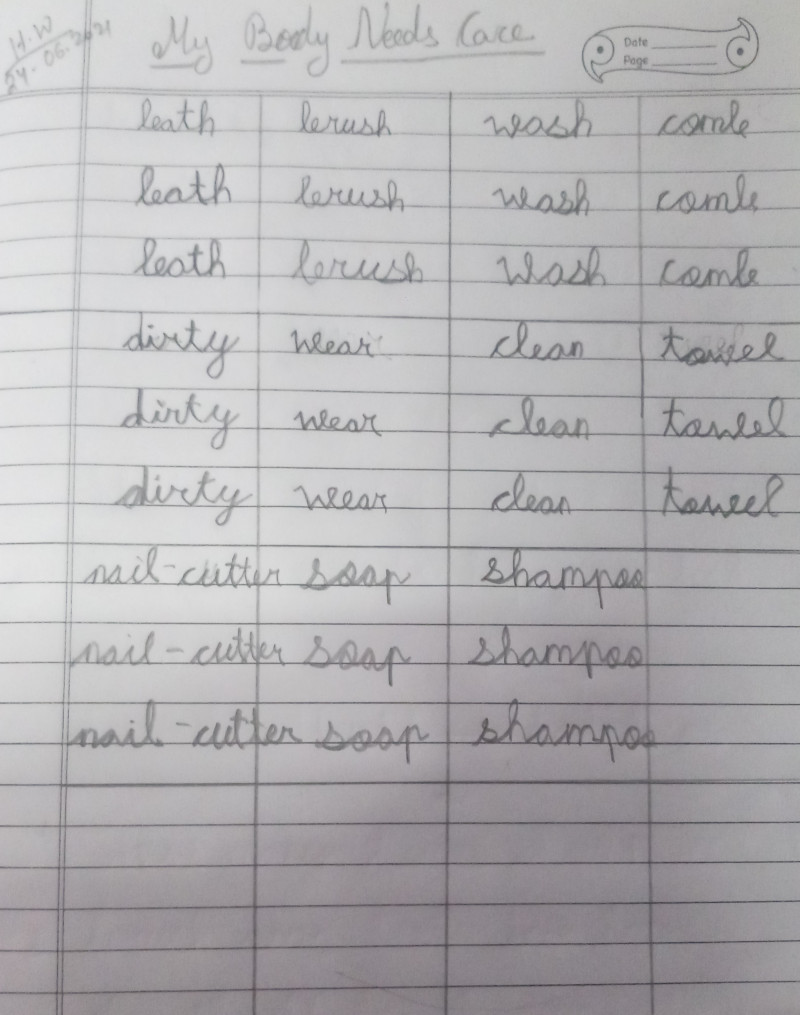 H.W
24.06.2021
My Body Needs Care
Date
Page
bath brush wash comb
bath brush wash comb
bath brush wash comb
dirty wear clean towel
dirty wear clean towel
dirty wear clean towel
nail-cutter soap shampoo
nail-cutter soap shampoo
nail-cutter soap shampoo